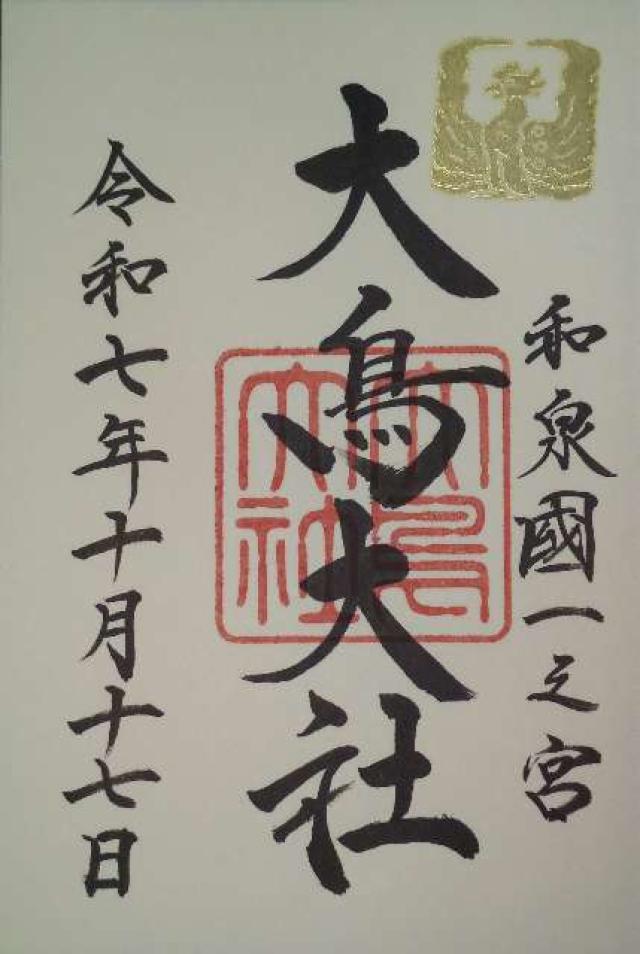 和泉國一之宮
大鳥大社
大鳥大社
令和七年十月十七日